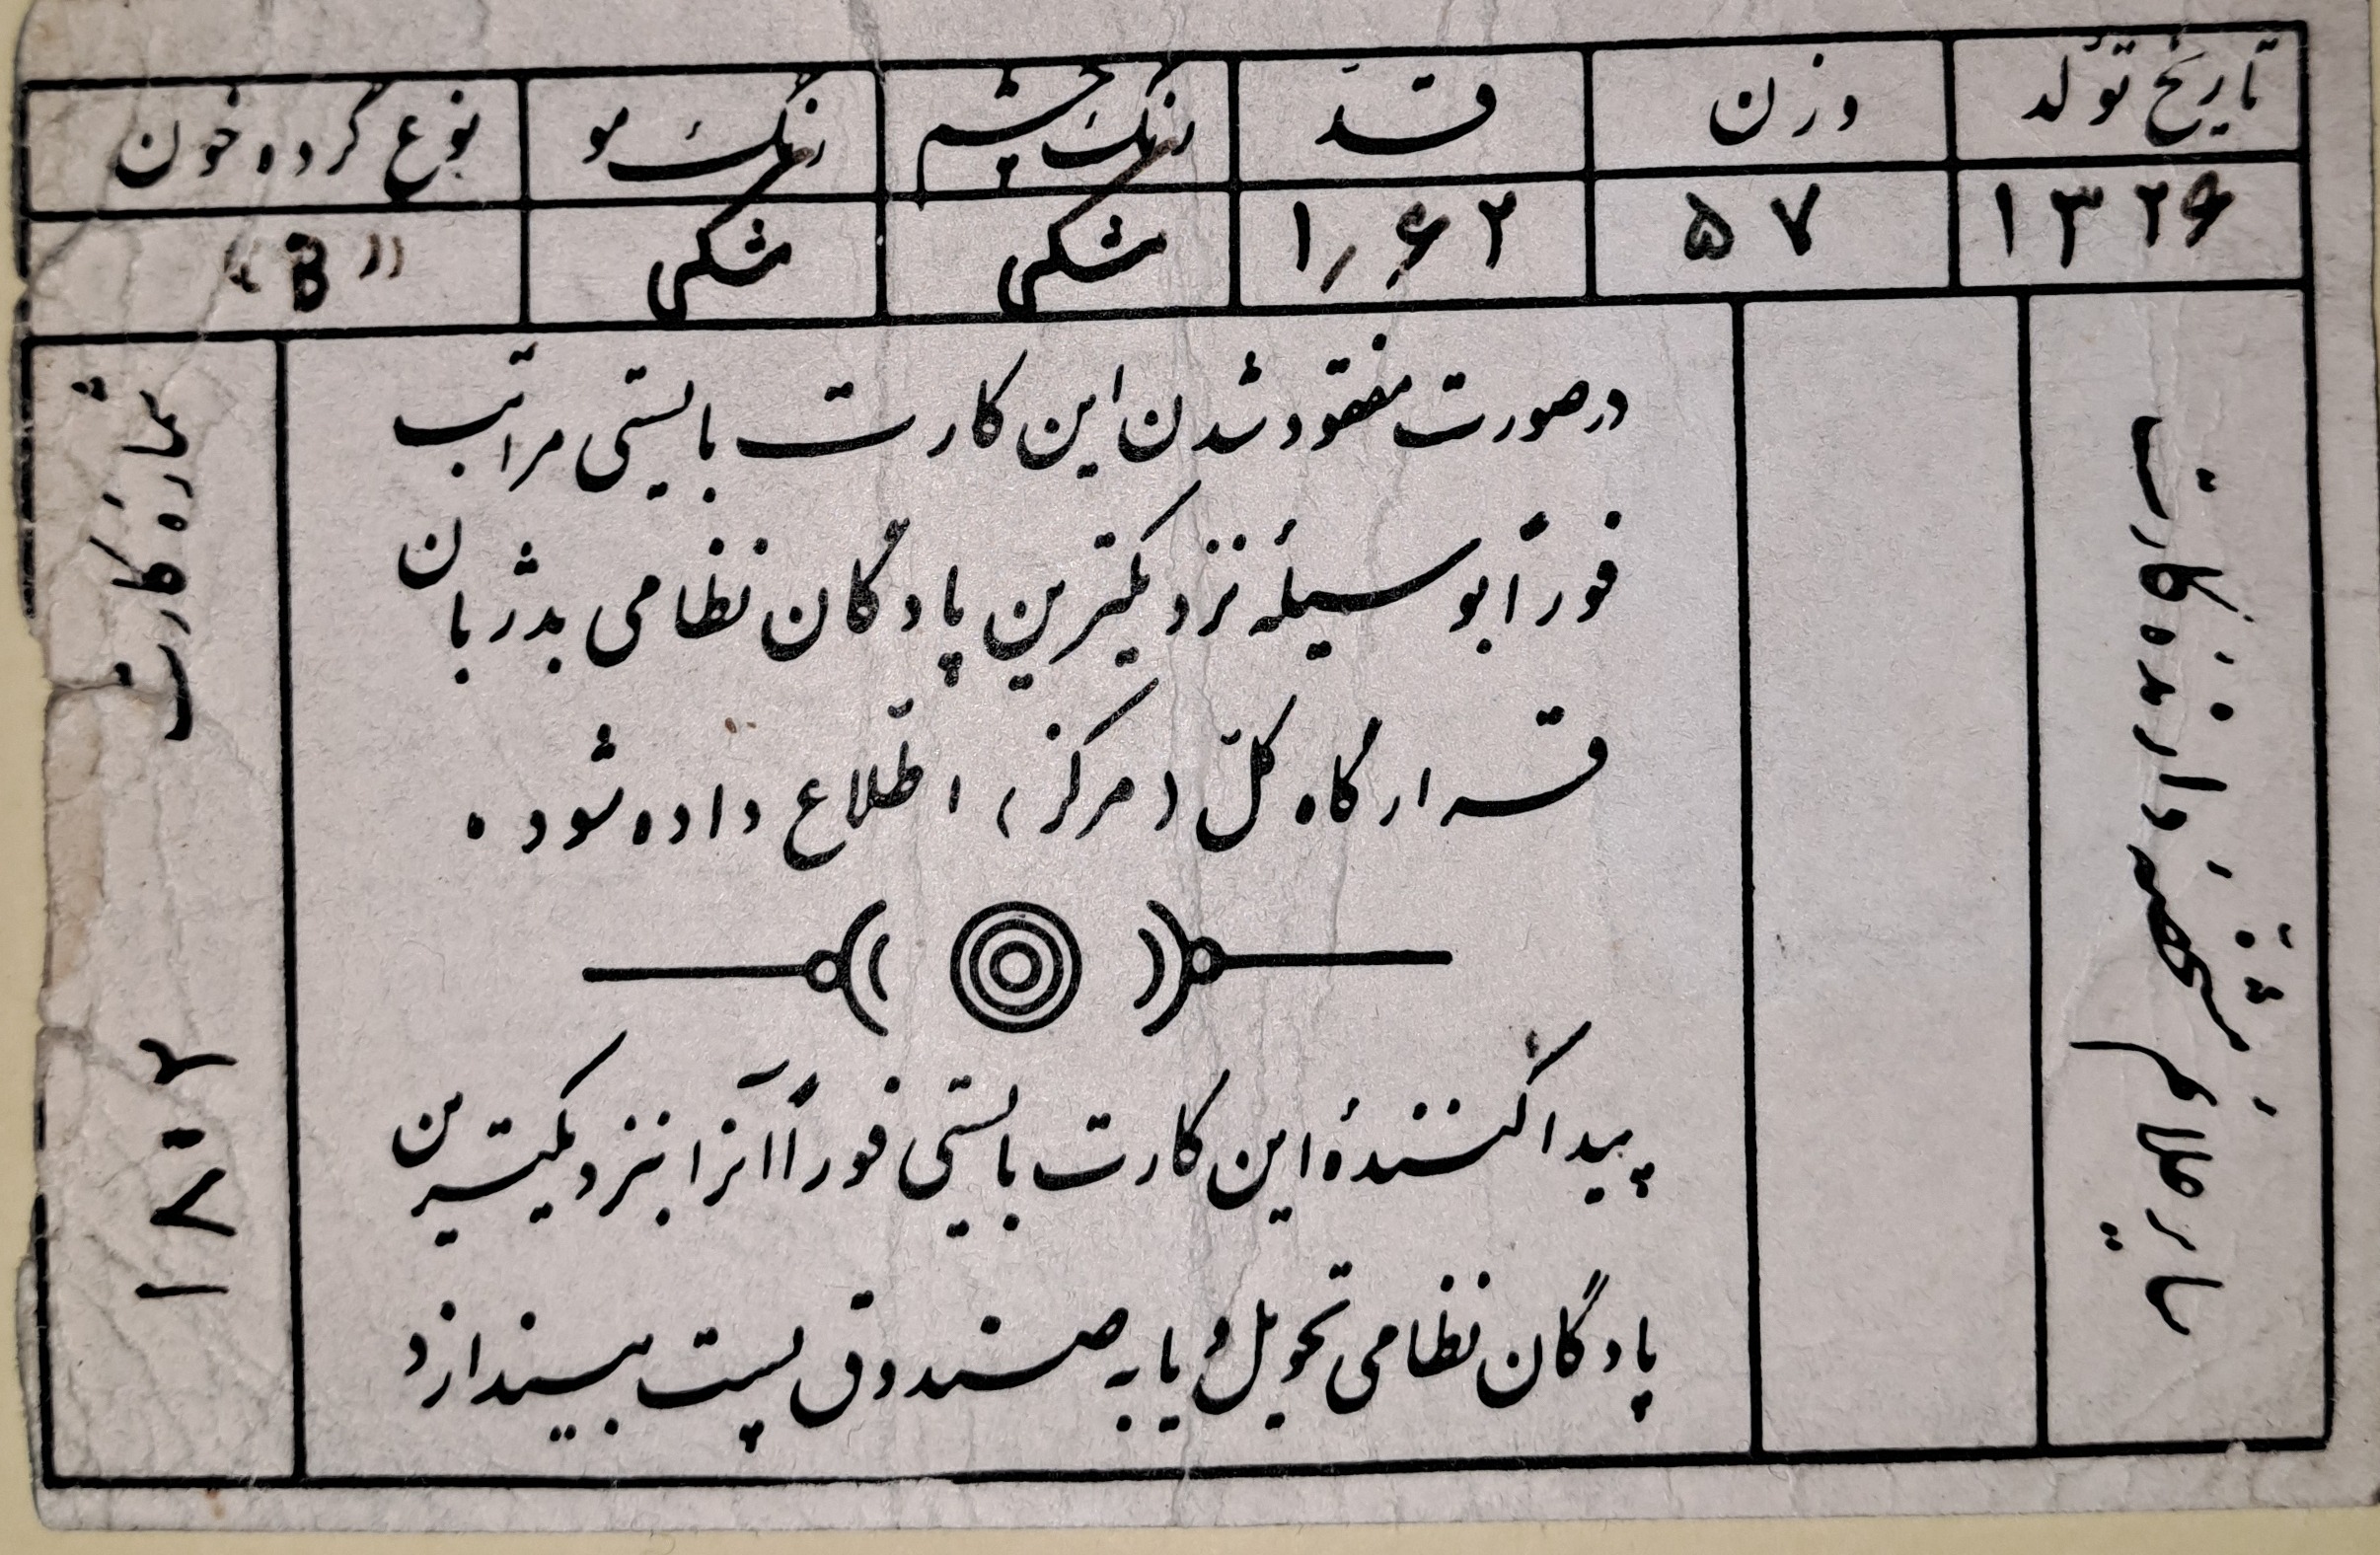 تاریخ تولّد
وزن
قدّ
رنگ چشم
رنگ مو
نوع گروه خون
۱۳۲۶
۵۷
۱٫۶۲
مشکی
مشکی
«B»
سایر علائم مشخصهٔ دارندهٔ کارت
در صورت مفقود شدن این کارت بایستی مراتب
فوراً بوسیلهٔ نزدیکترین پادگان نظامی بدژبان
قرارگاه کلّ (مرکز) اطّلاع داده شود.
پیدا کنندهٔ این کارت بایستی فوراً آنرا بنزدیکترین
پادگان نظامی تحویل و یا به صندوق پست بیندازد
شمارهٔ کارت
۱۸۰۲